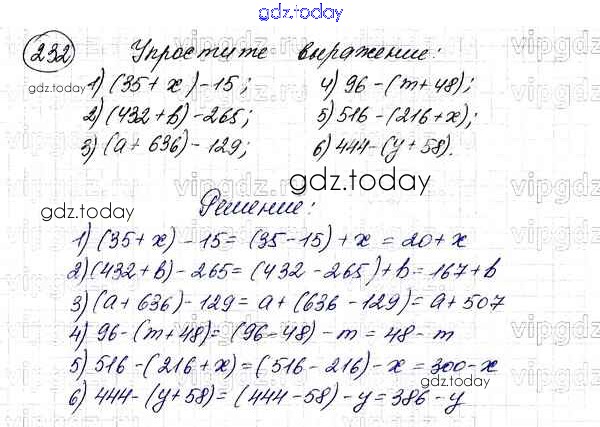 gdz.today
232 Упростите выражение:
1) (35+x)-15; 4) 96-(m+48);
2) (432+b)-265; 5) 516-(216+x);
3) (a+636)-129; 6) 444-(y+58).
gdz.today
gdz.today
gdz.today
Решение:
1) (35+x)-15=(35-15)+x=20+x
2) (432+b)-265=(432-265)+b=167+b
3) (a+636)-129=a+(636-129)=a+507
4) 96-(m+48)=(96-48)-m=48-m
5) 516-(216+x)=(516-216)-x=300-x
gdz.today
6) 444-(y+58)=(444-58)-y=386-y